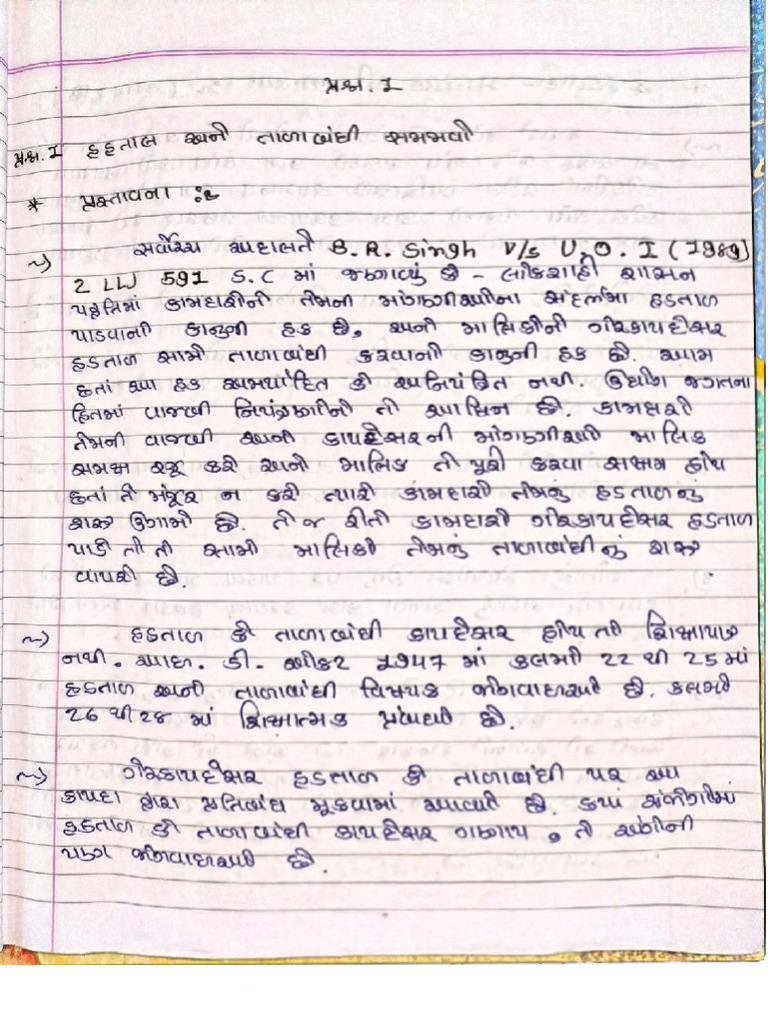 પ્રશ્ન. I
પ્રશ્ન. I હડતાલ અને તાળાબંધી સમજાવો
* પ્રસ્તાવના :-
~) સર્વોચ્ચ અદાલતે B. R. Singh v/s U. O. I (1989)
2 LLJ 591 S.C માં જણાવ્યું કે - લોકશાહી શાસન
પદ્ધતિમાં કામદારોની તેમની માંગણીઓના સંદર્ભમાં હડતાળ
પાડવાનો કાનુની હક છે, અને માલિકોને ગેરકાયદેસર
હડતાળ સામે તાળાબંધી કરવાનો કાનુની હક છે. આમ
છતાં આ હક અમર્યાદિત કે અનિયંત્રિત નથી. ઉદ્યોગ જગતના
હિતમાં વાજબી નિયંત્રણોને તે આધિન છે. કામદારો
તેમની વાજબી અને કાયદેસરની માંગણીઓ માલિક
સમક્ષ રજૂ કરે અને માલિક તે પૂરી કરવા સક્ષમ હોય
છતાં તે મંજૂર ન કરે ત્યારે કામદારો તેમનું હડતાળનું
શસ્ત્ર ઉગામે છે. તે જ રીતે કામદારો ગેરકાયદેસર હડતાળ
પાડે તો તે સામે માલિકો તેમનું તાળાબંધીનું શસ્ત્ર
વાપરે છે.
~) હડતાળ કે તાળાબંધી કાયદેસર હોય તો શિક્ષાપાત્ર
નથી. આઇ. ડી. એકટ 1947 માં કલમો 22 થી 25 માં
હડતાળ અને તાળાબંધી વિષયક જોગવાઇઓ છે. કલમો
26 થી 28 માં શિક્ષાત્મક પ્રબંધો છે.
~) ગેરકાયદેસર હડતાળ કે તાળાબંધી પર આ
કાયદા દ્વારા પ્રતિબંધ મૂકવામાં આવ્યો છે. કયા સંજોગોમાં
હડતાળ કે તાળાબંધી કાયદેસર ગણાય, તે અંગેની
પણ જોગવાઇઓ છે.